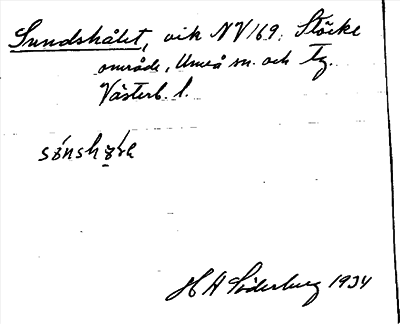 Sundshålet, vik NV 169. Stöcke
område, Umeå sn. och tg.
Västerb. l.
H A Söderberg 1934